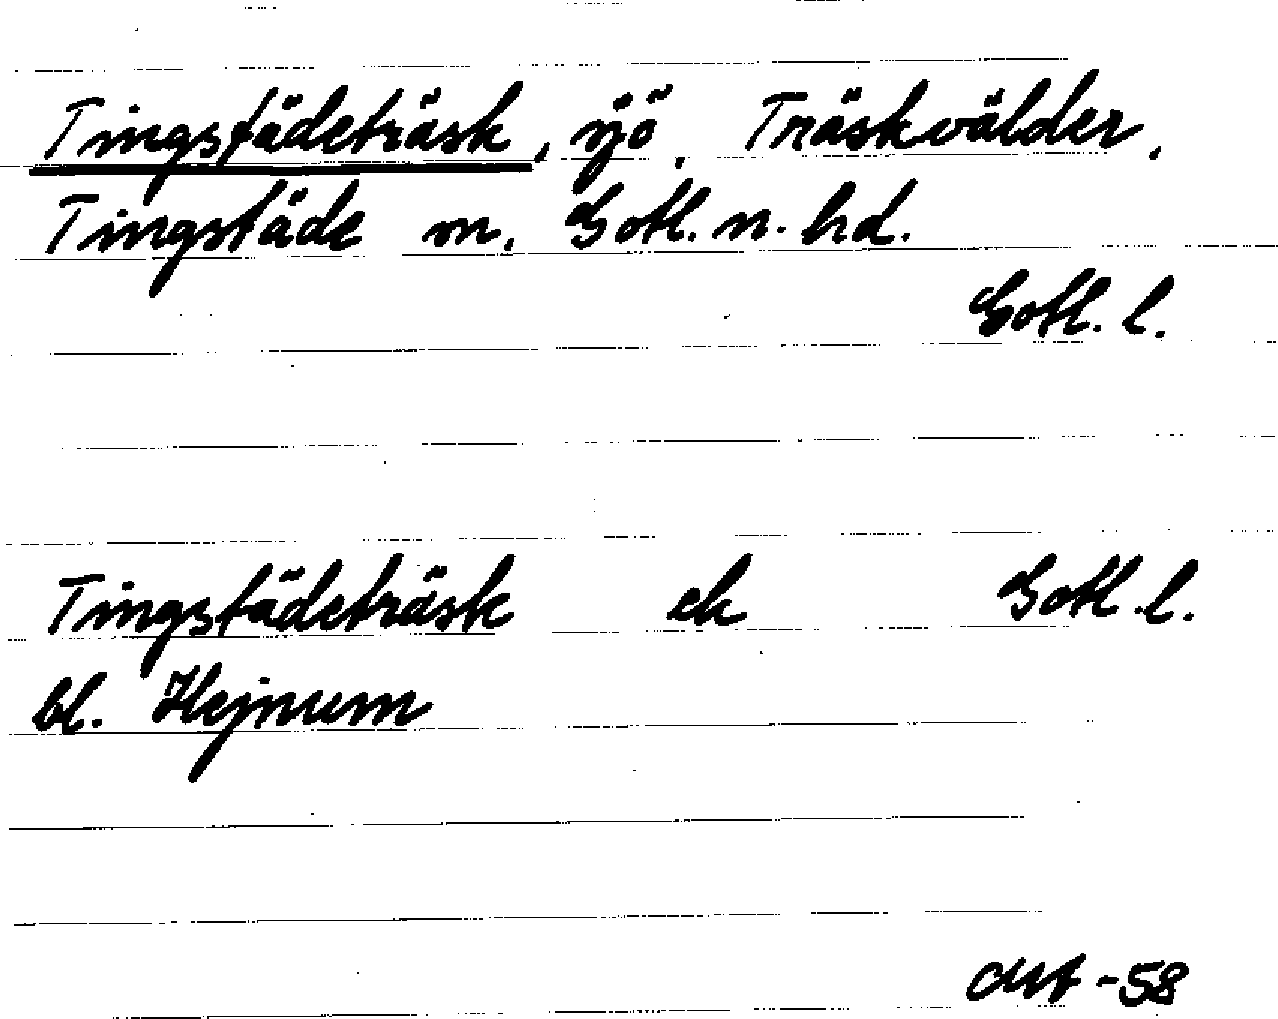 Tingstädeträsk, sjö, Träskvälder,
Tingstäde sn. Gotl. n. hd.
Gotl. l.
Tingstädeträsk ek Gotl. l.
bl. Hejnum
-58